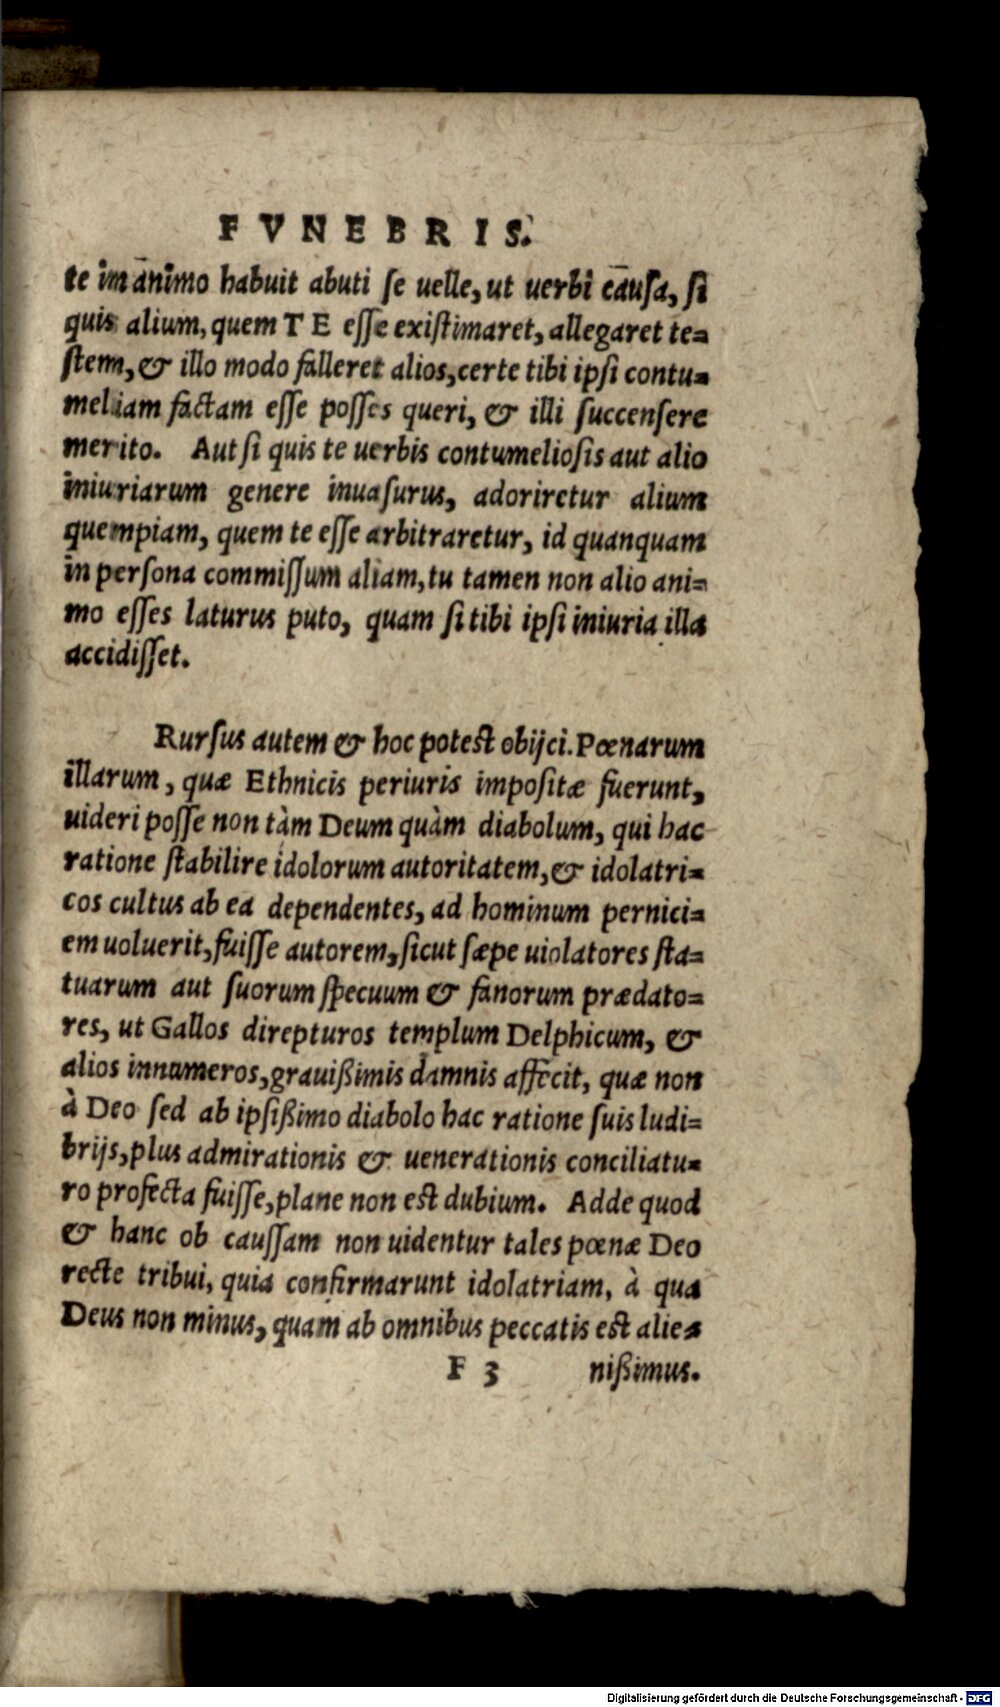 FVNEBRIS.
te im animo habuit abuti ſe uelle, ut uerbi cauſa, ſi
quis alium, quem TE eſſe exiſtimaret, allegaret te⸗
ſtem, & illo modo falleret alios, certe tibi ipſi contu⸗
meliam factam eſſe poſſes queri, & illi ſuccenſere
merito. Aut ſi quis te uerbis contumelioſis aut alio
iniuriarum genere inuaſurus, adoriretur alium
quempiam, quem te eſſe arbitraretur, id quanquam
in perſona commiſſum aliam, tu tamen non alio ani⸗
mo eſſes laturus puto, quam ſi tibi ipſi iniuria illa
accidiſſet.
Rurſus autem & hoc poteſt obijci. Pœnarum
illarum, quæ Ethnicis periuris impoſitæ fuerunt,
uideri poſſe non tàm Deum quàm diabolum, qui hac
ratione ſtabilire idolorum autoritatem, & idolatri⸗
cos cultus ab ea dependentes, ad hominum pernici⸗
em uoluerit, fuiſſe autorem, ſicut ſæpe uiolatores ſta⸗
tuarum aut ſuorum ſpecuum & fanorum prædato⸗
res, ut Gallos direpturos templum Delphicum, &
alios innumeros, grauißimis damnis affecit, quæ non
à Deo ſed ab ipſißimo diabolo hac ratione ſuis ludi⸗
brijs, plus admirationis & uenerationis conciliatu⸗
ro profecta fuiſſe, plane non eſt dubium. Adde quod
& hanc ob cauſſam non uidentur tales pœnæ Deo
recte tribui, quia confirmarunt idolatriam, à qua
Deus non minus, quam ab omnibus peccatis eſt alie⸗
F 3 nißimus.
Digitalisierung gefördert durch die Deutsche Forschungsgemeinschaft - DFG